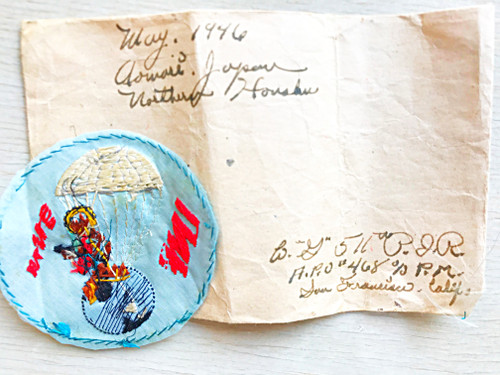 May. 1946
Aomari. Japan
Northern Honshu
511th P.I.R.
A.P.O #468 c/o P.M.
San Francisco. Calif.